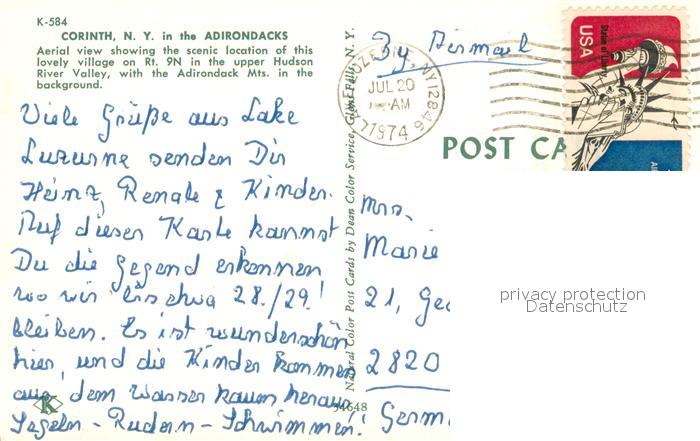 K-584
CORINTH, N. Y. in the ADIRONDACKS
Aerial view showing the scenic location of this
lovely village on Rt. 9N in the upper Hudson
River Valley, with the Adirondack Mts. in the
background.
Viele Grüße aus Lake
Luzurne senden Dir
Heinz, Renate & Kinder.
Auf dieser Karte kannst
Du die Gegend erkennen
wo wir bis etwa 28./29.
bleiben. Es ist wunderschön
hier, und die Kinder kommen
aus dem Wasser kaum heraus!
Segeln - Rudern - Schwimmen!
K
Natural Color Post Cards by Dean Color Service, Glens Falls, N. Y.
34648
By Airmail
LUZERNE, NY 12846
JUL 20
AM
1974
Statue of Liberty
USA
POST CA
Mrs.
Marie
21, Ge
2820
Germ
privacy protection
Datenschutz